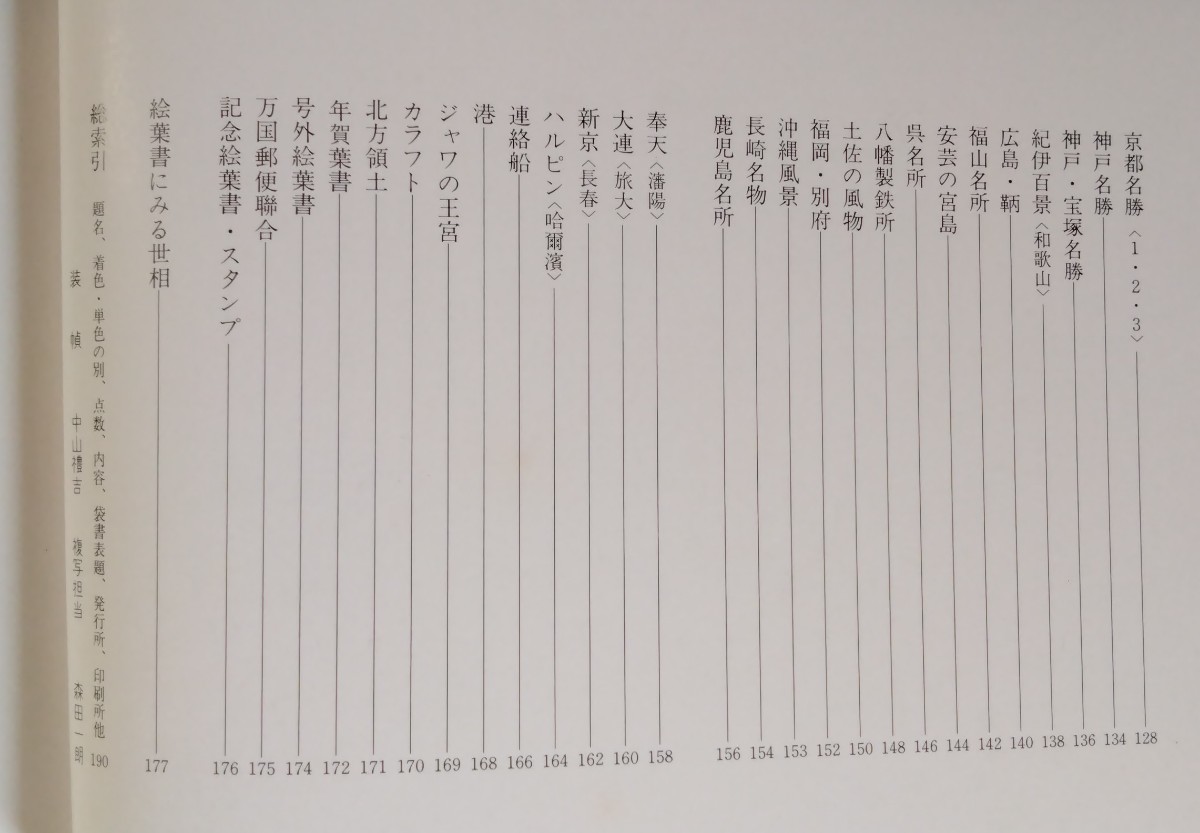 京都名勝〈1・2・3〉 128
神戸名勝 134
神戸・宝塚名勝 136
紀伊百景〈和歌山〉 138
広島・鞆 140
福山名所 142
安芸の宮島 144
呉名所 146
八幡製鉄所 148
土佐の風物 150
福岡・別府 152
沖縄風景 153
長崎名物 154
鹿児島名所 156
奉天〈瀋陽〉 158
大連〈旅大〉 160
新京〈長春〉 162
ハルピン〈哈爾濱〉 164
連絡船 166
港 168
ジャワの王宮 169
カラフト 170
北方領土 171
年賀葉書 172
号外絵葉書 174
万国郵便聯合 175
記念絵葉書・スタンプ 176
絵葉書にみる世相 177
総索引 題名、着色・単色の別、点数、内容、袋書表題、発行所、印刷所他 190
装幀 中山禮吉 複写担当 森田一明